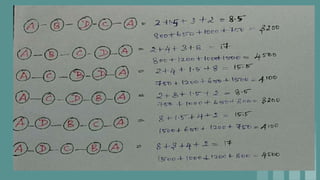 A - B - D - C - A = 2+1.5+3+2 = 8.5
800+650+1000+750 = 3200
A - B - C - D - A = 2+4+3+8 = 17
800+1200+1000+1500 = 4500
A - C - B - D - A = 2+4+1.5+8 = 15.5
750+1200+650+1500 = 4100
A - C - D - B - A = 2+3+1.5+2 = 8.5
750+1000+650+800 = 3200
A - D - B - C - A = 8+1.5+4+2 = 15.5
1500+650+1200+750 = 4100
A - D - C - B - A = 8+3+4+2 = 17
1500+1000+1200+800 = 4500